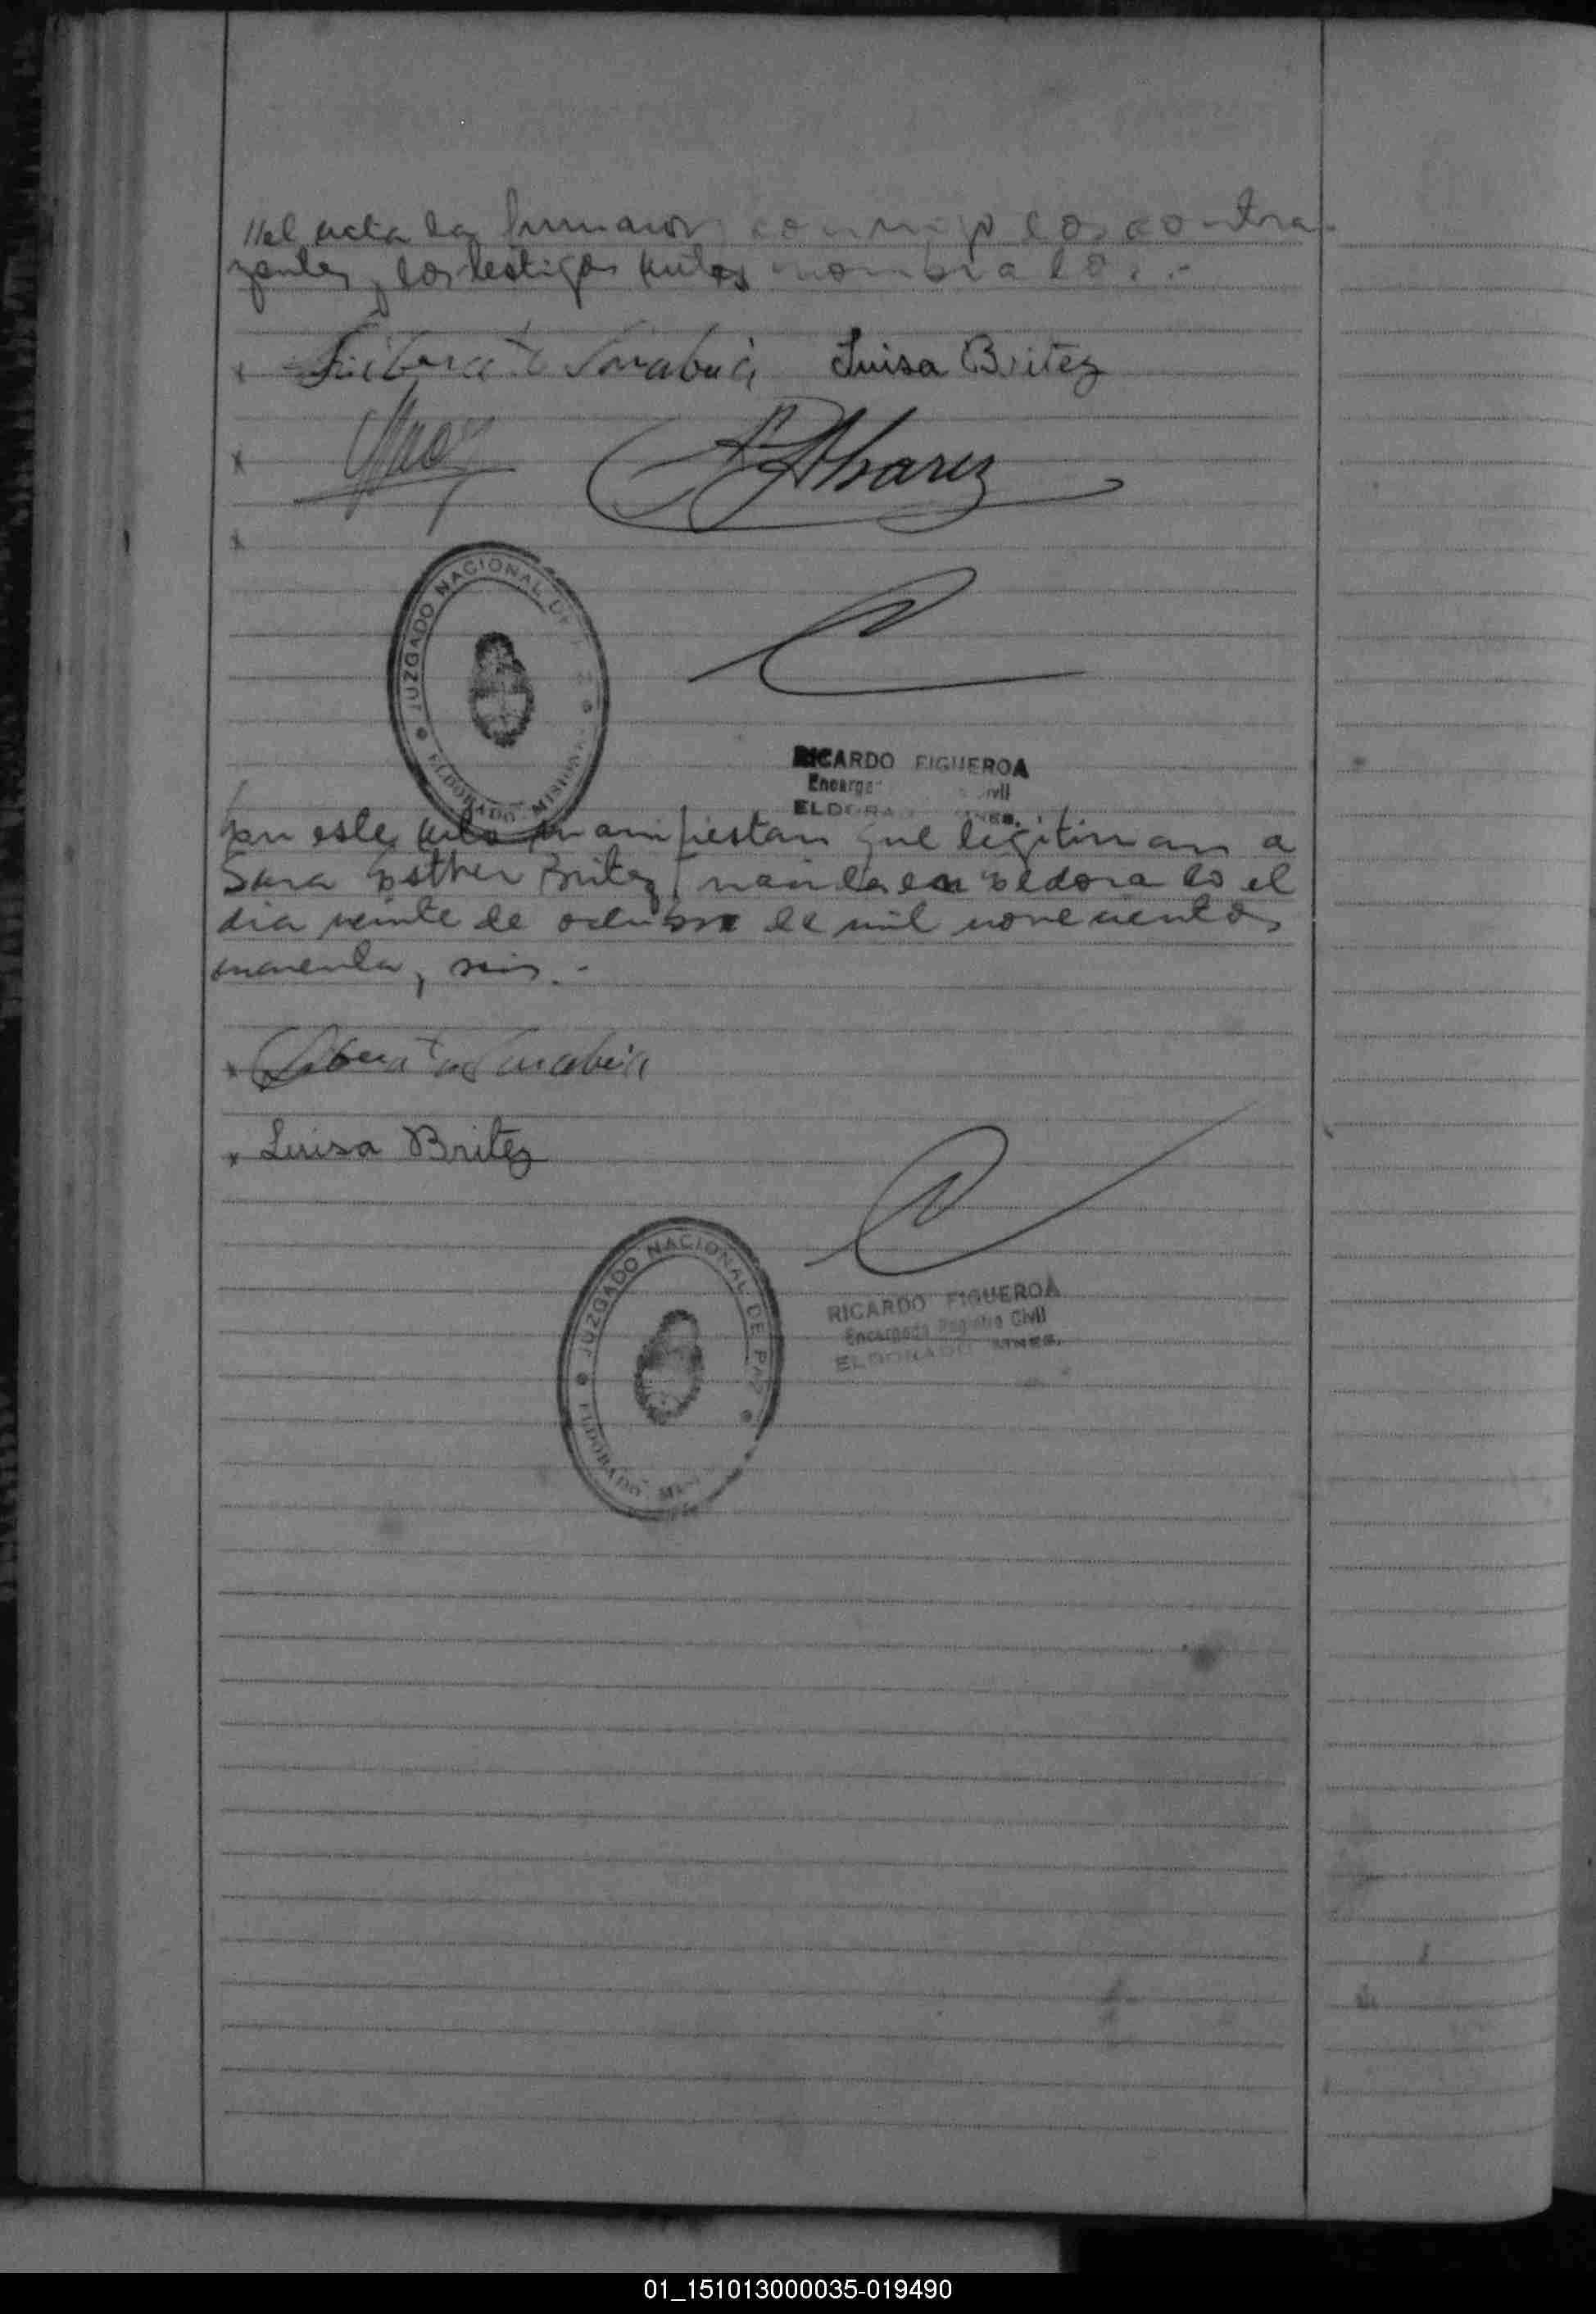 //el acta la firmaron conmigo los contra-
yentes y los testigos antes nombrados.-
x Liberato Sarabia Luisa Britez
x
A Alvarez
x
JUZGADO NACIONAL DE
ELDORADO - MISIONES
RICARDO FIGUEROA
ELDORADO MNES.
En este acto manifiestan que legitiman a
Sara Esther Britez, nacida en Eldorado el
dia veinte de octubre de mil novecientos
cuarenta y seis.-
x Liberato Sarabia
x Luisa Britez
JUZGADO NACIONAL DE PAZ
ELDORADO
RICARDO FIGUEROA
Encargado Registro Civil
ELDORADO MNES.
01_151013000035-019490